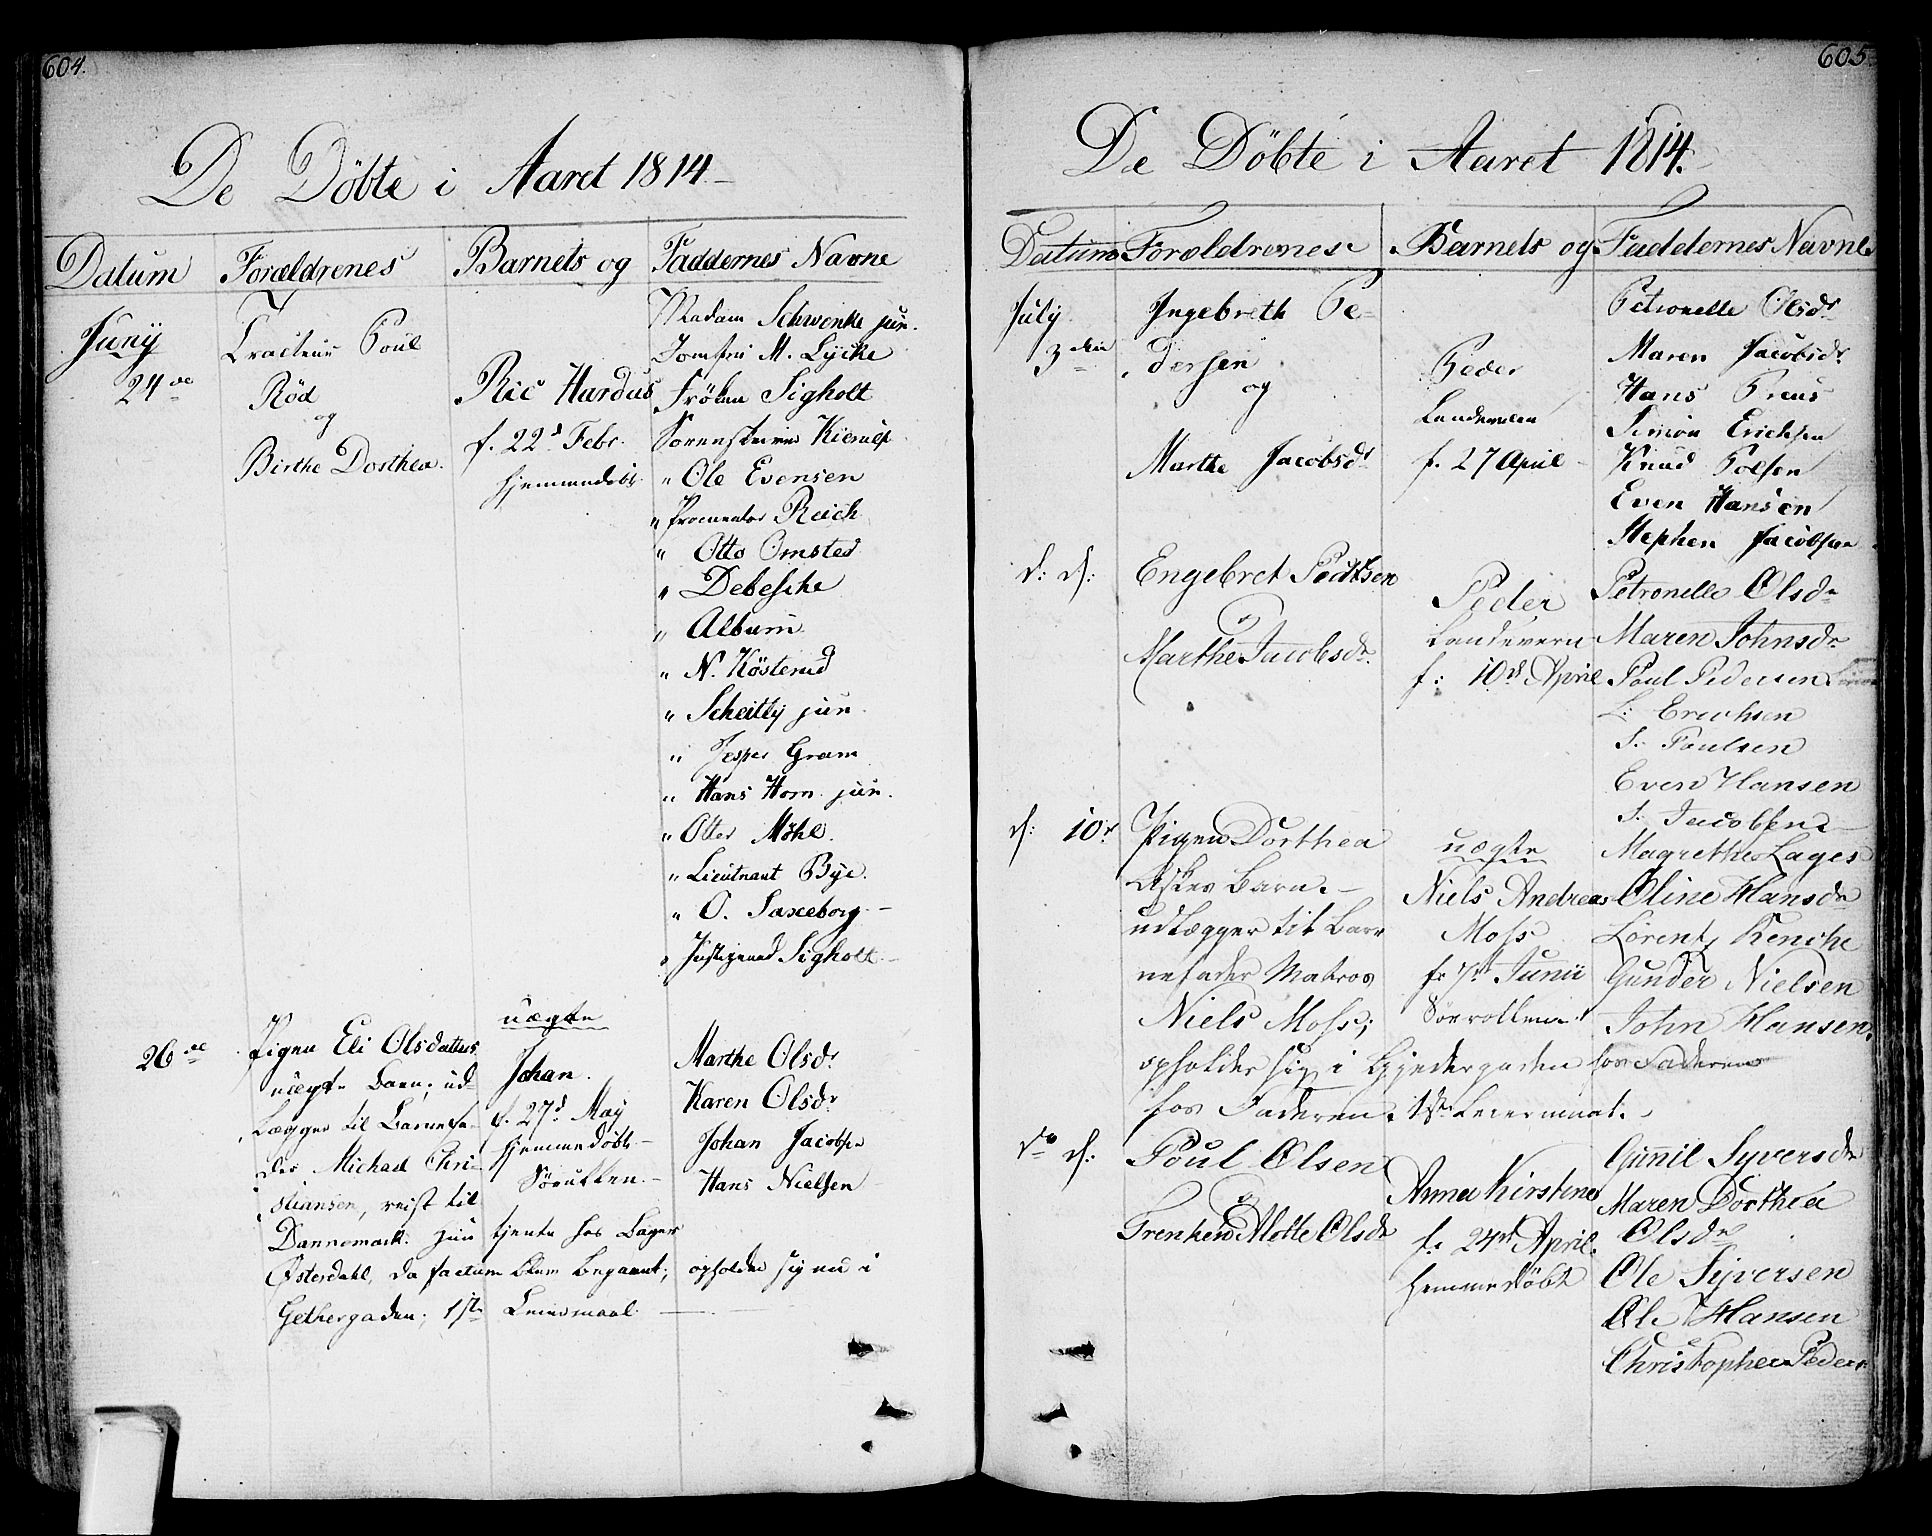 604.
De Döbte i Aaret 1814
Datum Forældrenes Barnets og Faddernes Navne
Juny
24de
Tracteur Poul
Rød
og
Birthe Dorthea.
Ric Hardus
f. 22d Febr.
hjemmedöbt
Madam Schwenke jun.
Jomfru M. Lycke
Frölen Sigholt
Ole Evensen
Reich
Otto Omsted
Debesche
Album
N. Kösterud
Scheitly jun.
Jesper Gram
Hans Horn jun.
Otter Möhl.
Lieutnant Bye.
O. Saxeborg
Sigholt
26de
Pigen Eli Olsdatters
uægte Barn; ud-
lægger til Barnefa-
der Michael Chri-
stiansen, reist til
Dannemark. hun tjente hos Bager
Østerdahl, da factum blev begaaet; opholder sig nu i
Gethergaden; 1ste Leiermaal.
uægte
Johan.
f. 27d May
hjemmedöbt
Marthe Olsdr
Karen Olsdr
Johan Jacobsen
Hans Nielsen
605
De Döbte i Aaret 1814.
Datum Forældrenes Barnets og Faddernes Navne
July
3den
Ingebreth Pe-
dersen
og
Marthe Jacobsdr
Peder
f. 27 April
Petronelle Olsdr
Maren Jacobsdr
Hans Preus
Simon Erichsen
Knud Polsen
Even Hansen
Stephen Jacobsen
d: d:
Engebret Pedtsen
og
Marthe Jacobsdr.
Peder
Landevern
f: 10d April
Petronelle Olsdr
Maren Johnsdr
Poul Pedersen
L: Erichsen
S. Poulsen
Even Hansen
S. Jacobsen
d: 10d
Pigen Dorthea
Barn
udlægger til Bar-
nefader Matros
Niels Moss;
opholder sig i Gjedergaden hos Faderen
hos Faderen. 1ste Leiermaal.
uægte
Niels Andreas
Moss
f. 7d Junii
Sörrollen
Magrethe Lages
Oline Hansdr
Lorentz Kenche
Gunder Nielsen
John Hansen
do d:
Poul Olsen
og
Trenken Alotte Olsdr
Anne Kirstine
f. 24d April
hemmedöbt
Gunil Syversdr
Maren Dorthea
Olsdr
Ole Syversen
Ole Hansen
Christopher Peders